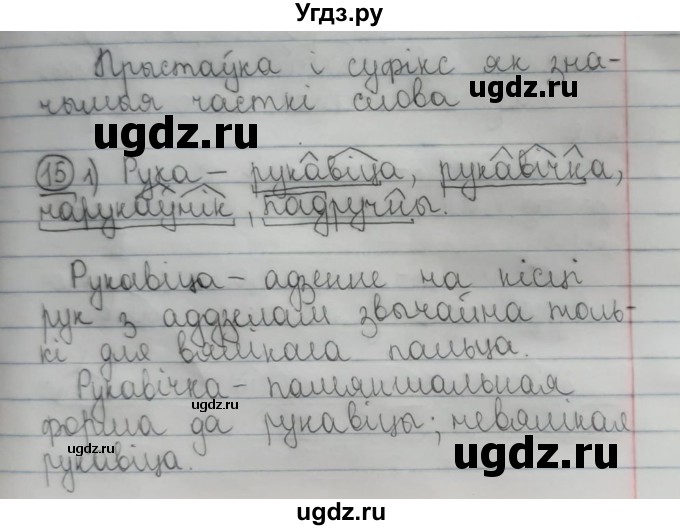 Угдз.ру
Прыстаўка і суфікс як зна-
чымыя часткі слова
ugdz.ru
ugdz.ru
15 1) Рука – рукавіца, рукавічка,
нарукаўнік, падручны.
Рукавіца – адзенне на кісці
рук з аддзелам звычайна толь-
кі для вялікага пальца.
ugdz.ru
ugdz.ru
Рукавічка – памяншальная
форма да рукавіцы; невялікая
рукавіца.
ugdz.ru
ugdz.ru
ugdz.ru